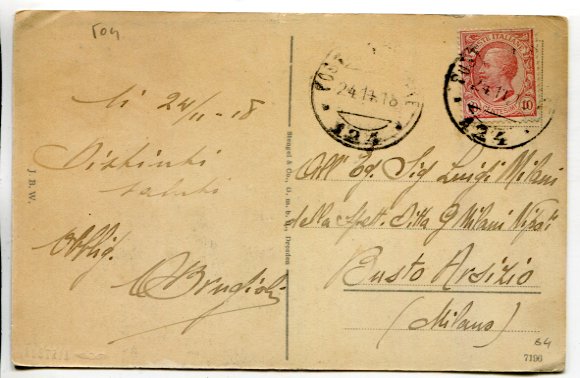 Ton
li 24/11-18
Distinti
saluti
Obblig.
CBrugioli
J. B. W.
Stengel & Co., G. m. b. H., Dresden
24.11.18
124
POSTE ITALIANE
10
124
All' Eg. Sig Luigi Milani
della Spett. Ditta G Milani Nipoti
Busto Arsizio
(Milano)
84
7196